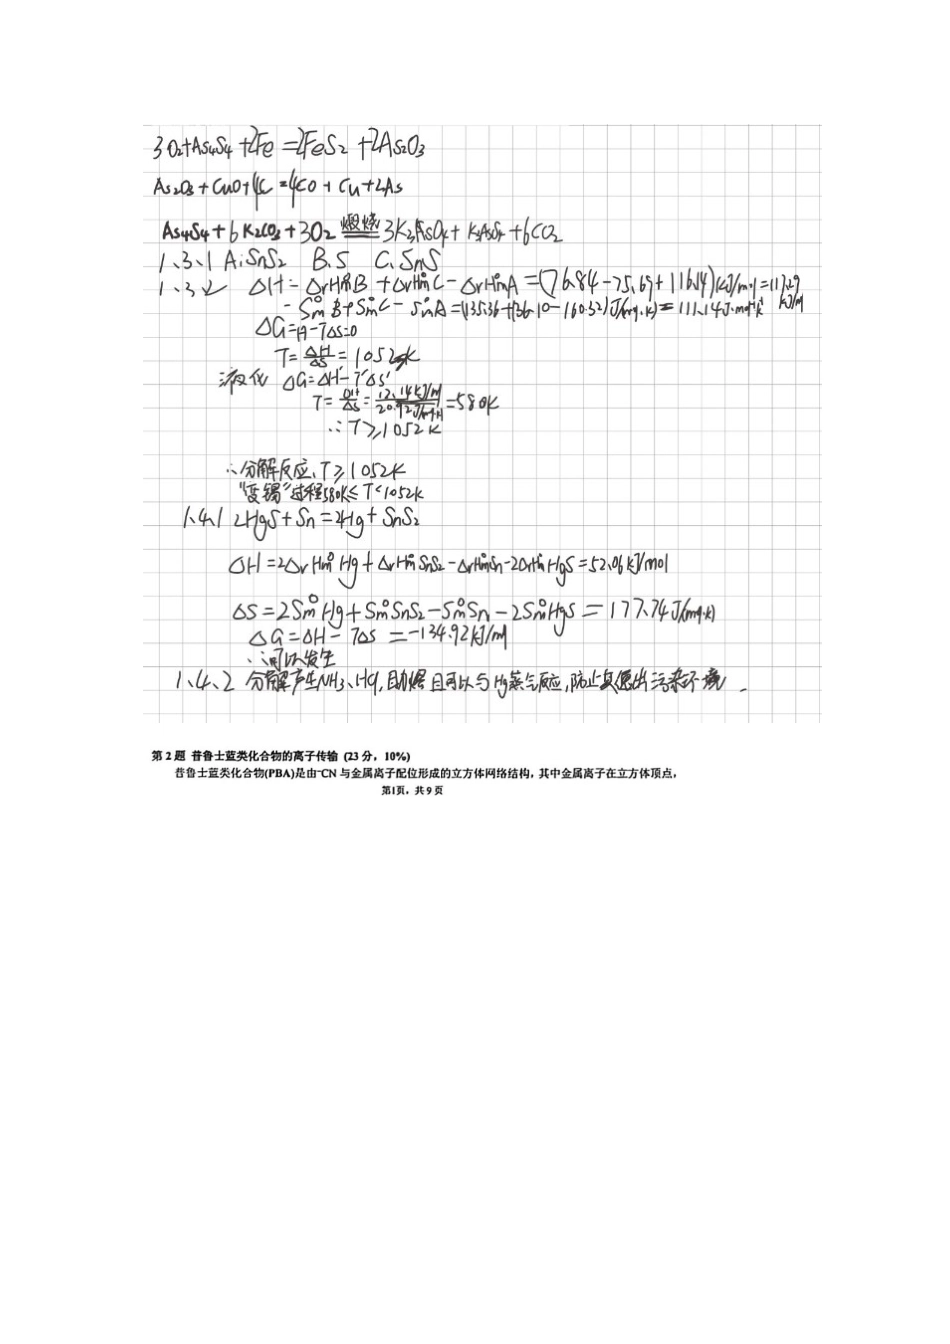 3O₂+As₄S₄+2Fe=2FeS₂+2As₂O₃
As₂O₃+CuO+4C=4CO+Cu+2As
As₄S₄+6K₂CO₃+3O₂ 煅烧 3K₃AsO₄+K₃AsS₄+6CO₂
1.3.1 A:SnS₂ B.S C.SnS
1.3.2 ΔH=ΔrHmB+ΔrHmC-ΔrHmA=(76.84-75.69+116.14)kJ/mol=117.29 kJ/M
- SmB+SmC-SmA=(135.36+136.10-160.32)J/(mol·K)=111.14J·mol⁻¹K⁻¹
ΔG=H-TΔS=0
T=ΔH/ΔS=1052K
液化 ΔG=ΔH'-T'ΔS'
T=ΔH/ΔS=12.14kJ/M/20.92J/(mol·K)=580K
∴T≥1052K
∴分解反应,T≥1052K
"变锡"过程580K≤T<1052K
1.4.1 2HgS+Sn=2Hg+SnS₂
ΔH=2ΔrHm°Hg+ΔrHm°SnS₂-ΔrHm°Sn-2ΔrHm°HgS=52.06kJ/mol
ΔS=2Sm°Hg+Sm°SnS₂-Sm°Sn-2Sm°HgS=177.74J/(mol·K)
ΔG=ΔH-TΔS=-134.92kJ/M
∴可以发生
1.4.2 分解产生NH₃、HCl,助熔且可以与Hg蒸气反应,防止其逸出污染环境.
第2题 普鲁士蓝类化合物的离子传输 (23分,10%)
普鲁士蓝类化合物(PBA)是由⁻CN与金属离子配位形成的立方体网络结构,其中金属离子在立方体顶点,
第1页,共9页